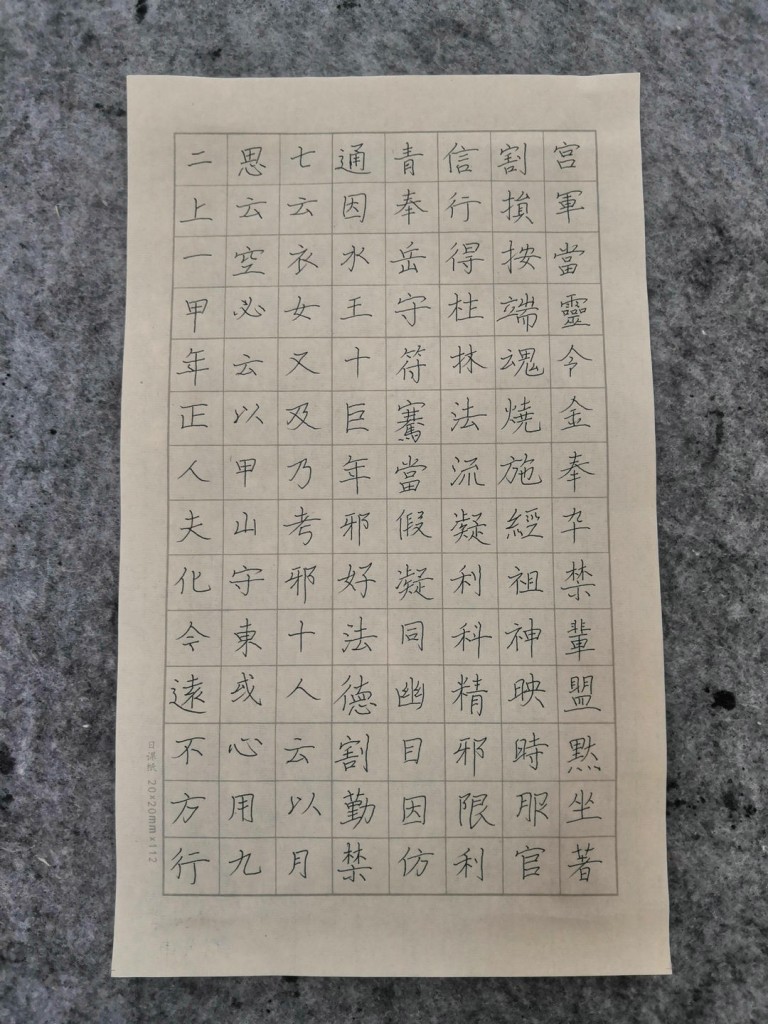 宫軍當靈令金奉卆禁輩盟默坐著
割損按端魂燒施經祖神映時服官
信行得柱林法流凝利科精邪限利
青奉岳守符騫當假凝同幽目因仿
通因水王十巨年邪好法德割勤禁
七云衣女又及乃考邪十人云以月
思云空必云以甲山守東或心用九
二上一甲年正人夫化令遠不方行
日课纸 20×20mm×112